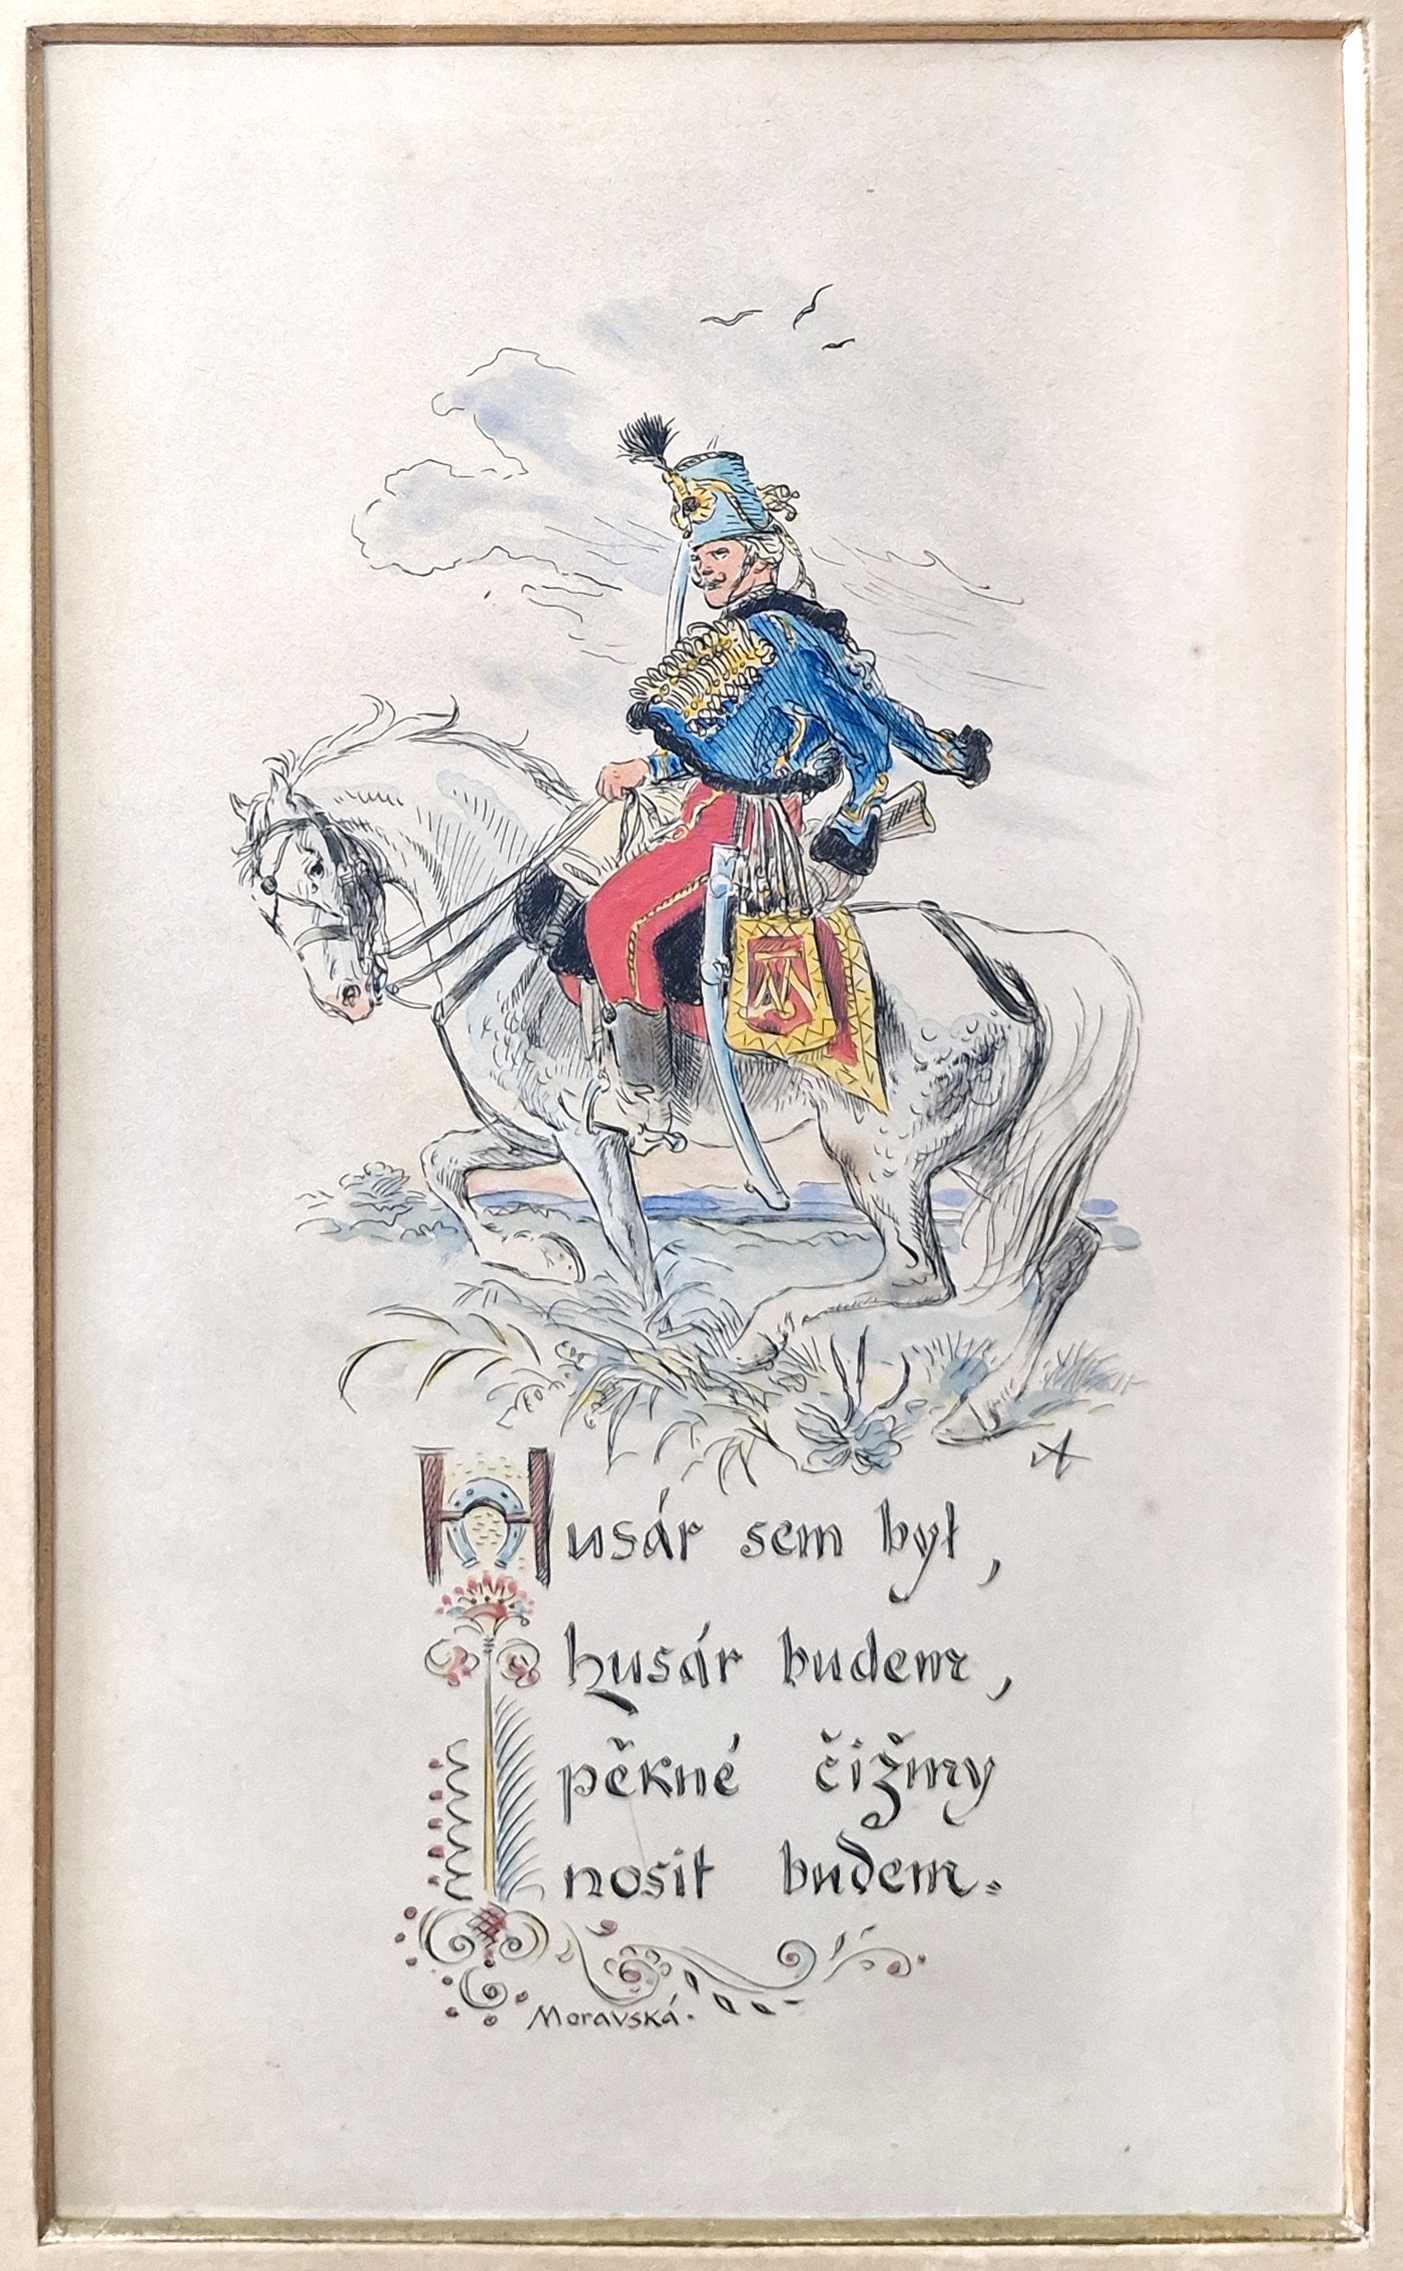 Husár sem był,
husár budem,
pěkné čižmy
nosit buďem.
Moravská.